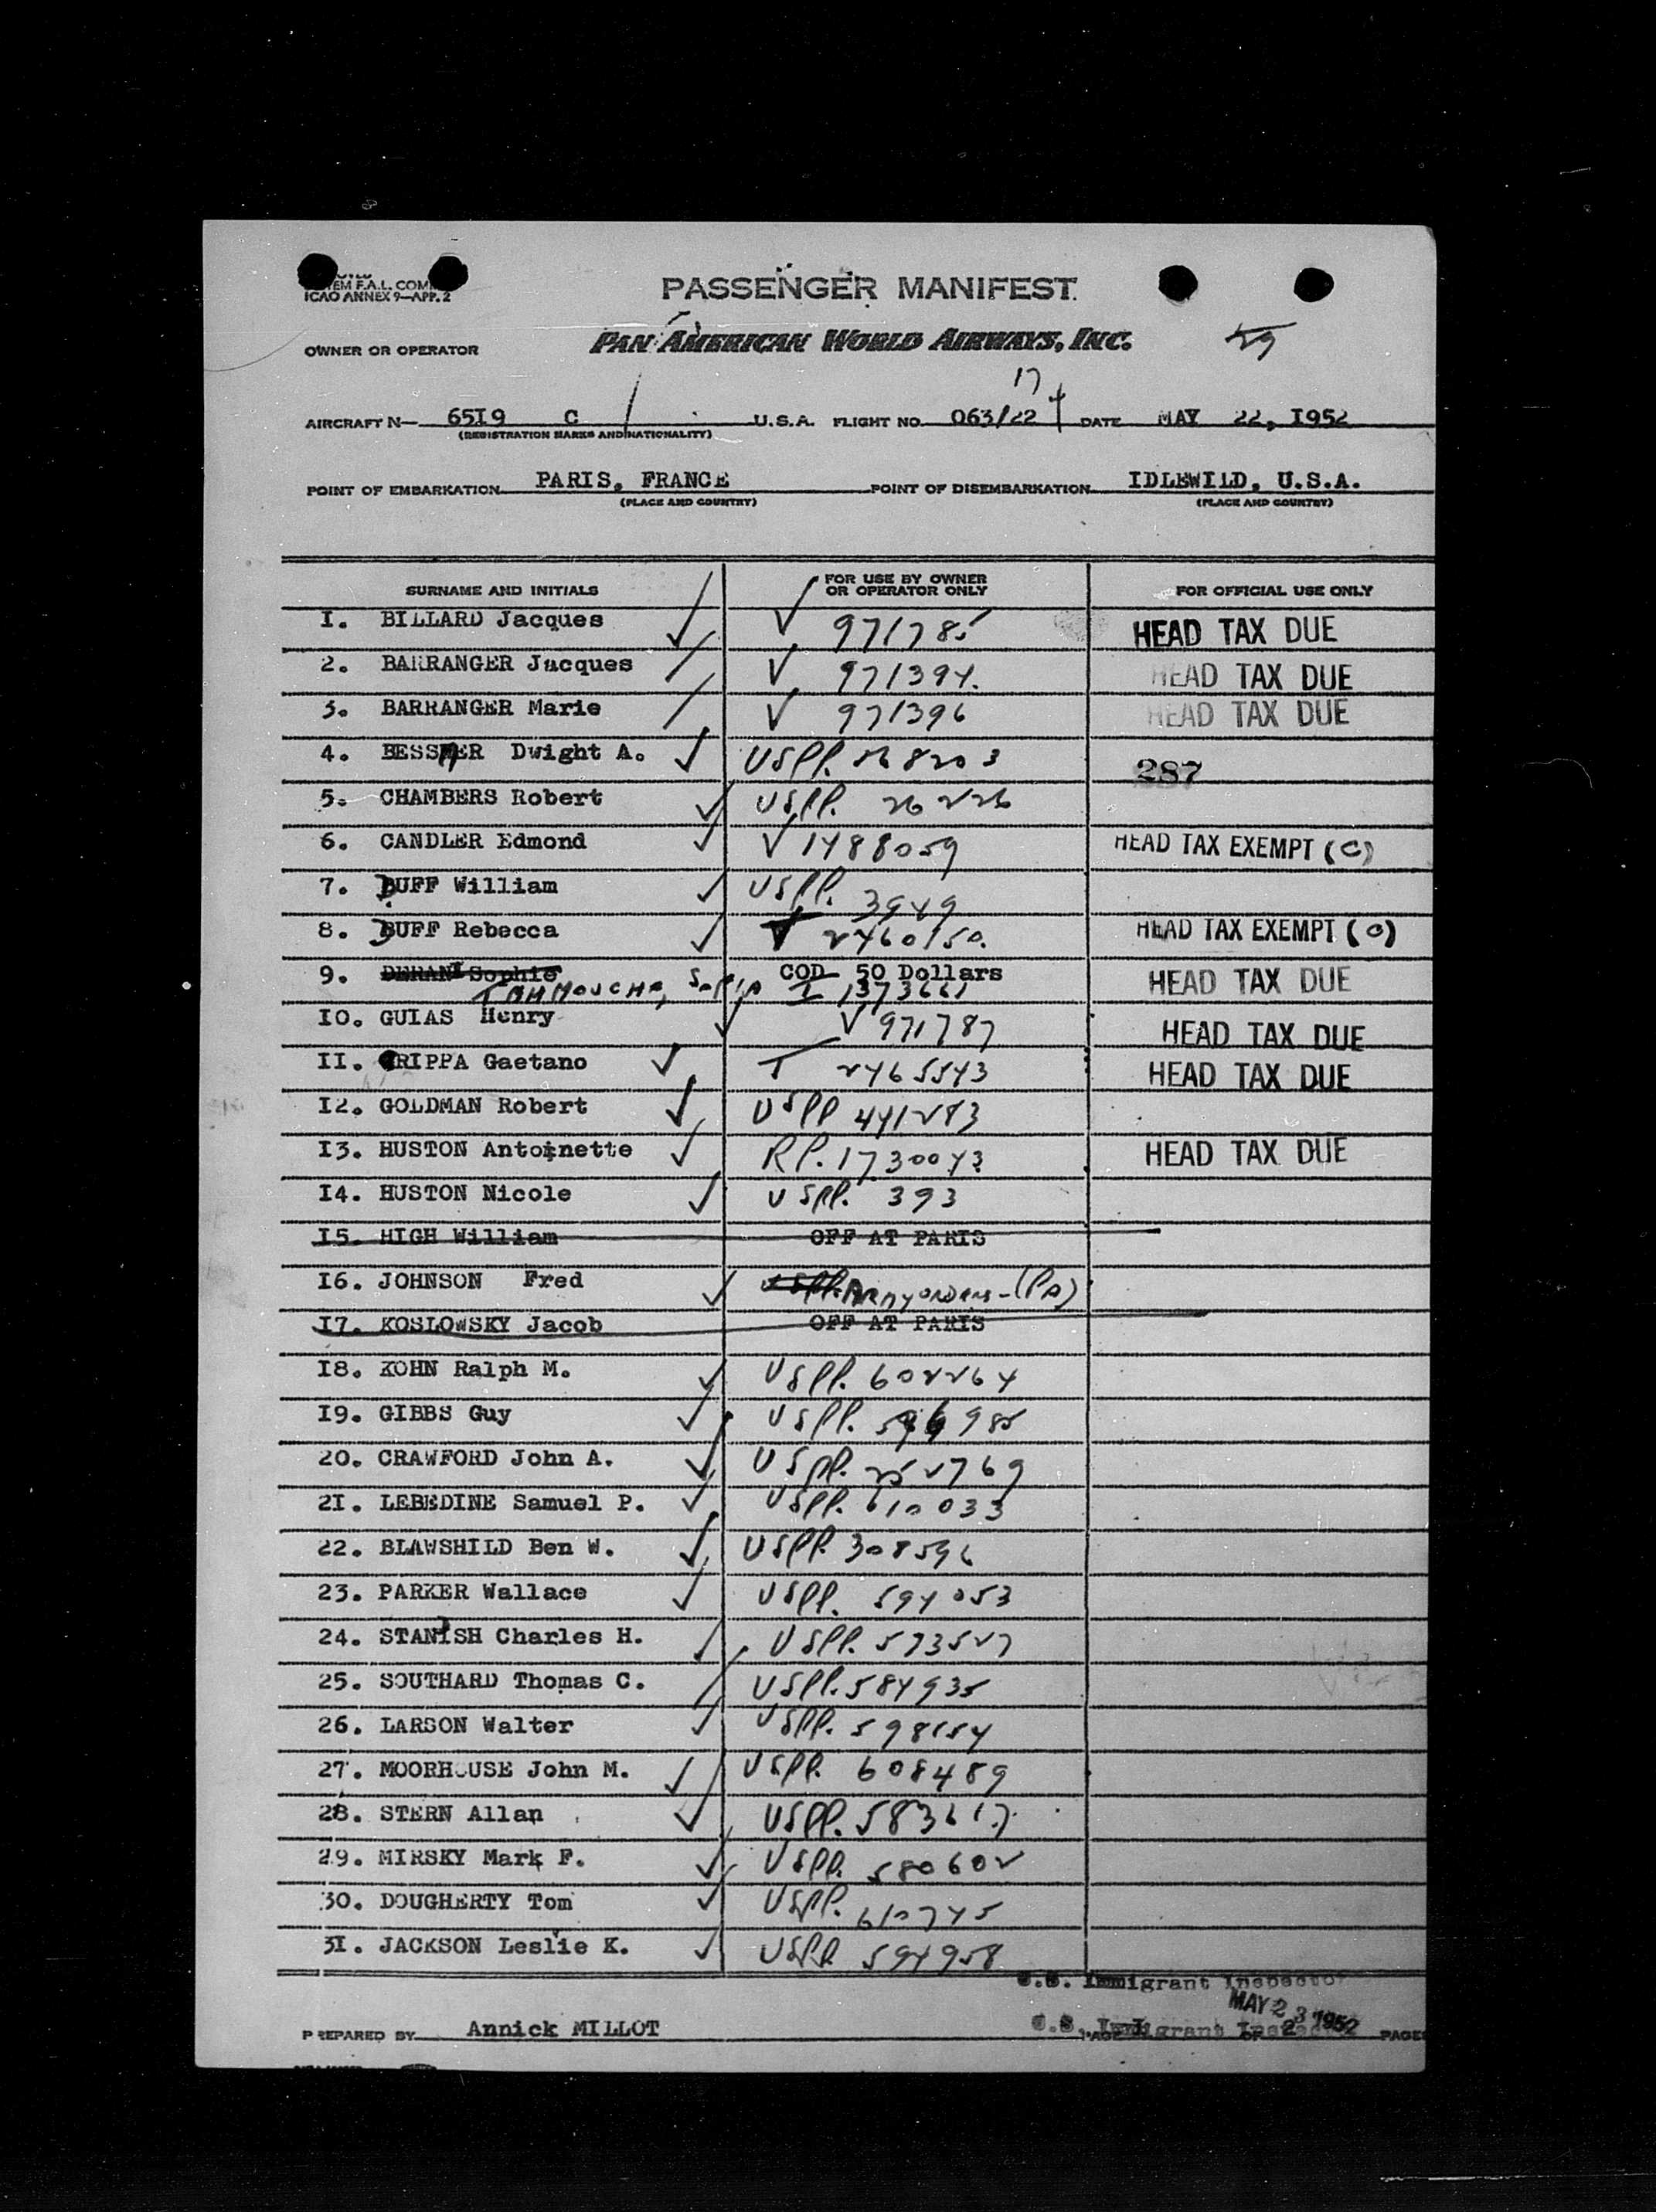 TEM F.A.L. COM
ICAO ANNEX 9—APP. 2
PASSENGER MANIFEST
OWNER OR OPERATOR PAN AMERICAN WORLD AIRWAYS, INC.
17
AIRCRAFT N— 65I9 C U.S.A. FLIGHT NO. 063/22 DATE MAY 22, I952
(REGISTRATION MARKS AND NATIONALITY)
POINT OF EMBARKATION PARIS, FRANCE POINT OF DISEMBARKATION IDLEWILD, U.S.A.
(PLACE AND COUNTRY) (PLACE AND COUNTRY)
SURNAME AND INITIALS FOR USE BY OWNER OR OPERATOR ONLY FOR OFFICIAL USE ONLY
I. BILLARD Jacques V 971785 HEAD TAX DUE
2. BARRANGER Jacques V 971394. HEAD TAX DUE
3. BARRANGER Marie V 971396 HEAD TAX DUE
4. BESSMER Dwight A. USPP. 568203 287
5. CHAMBERS Robert USPP. 26226
6. CANDLER Edmond V 1488059 HEAD TAX EXEMPT (C)
7. DUFF William USPP. 3949
8. DUFF Rebecca V 2460150. HEAD TAX EXEMPT (C)
9. DERANI Sophie COD 50 Dollars HEAD TAX DUE
TAHMOUCHE, Sofia I 1373661
I0. GUIAS Henry V 971787 HEAD TAX DUE
II. GRIPPA Gaetano T 2465543 HEAD TAX DUE
I2. GOLDMAN Robert USPP 441283
I3. HUSTON Antoinette RP. 1730043 HEAD TAX DUE
I4. HUSTON Nicole USPP. 393
I5. HIGH William OFF AT PARIS
I6. JOHNSON Fred USPP. Army orders - (PA)
I7. KOSLOWSKY Jacob OFF AT PARIS
I8. KOHN Ralph M. USPP. 602264
I9. GIBBS Guy USPP. 985
20. CRAWFORD John A. USPP. 252769
2I. LEBEDINE Samuel P. USPP. 610033
22. BLAWSHILD Ben W. USPP. 308596
23. PARKER Wallace USPP. 594053
24. STANISH Charles H. USPP. 573527
25. SOUTHARD Thomas C. USPP. 584935
26. LARSON Walter USPP. 598154
27. MOORHOUSE John M. USPP. 608489
28. STERN Allan USPP. 583617.
29. MIRSKY Mark F. USPP. 580602
30. DOUGHERTY Tom USPP. 610745
3I. JACKSON Leslie K. USPP. 594958
U.S. Immigrant Inspector
MAY 23 1952
PREPARED BY Annick MILLOT U.S. Immigrant Inspector PAGE OF 2 PAGES